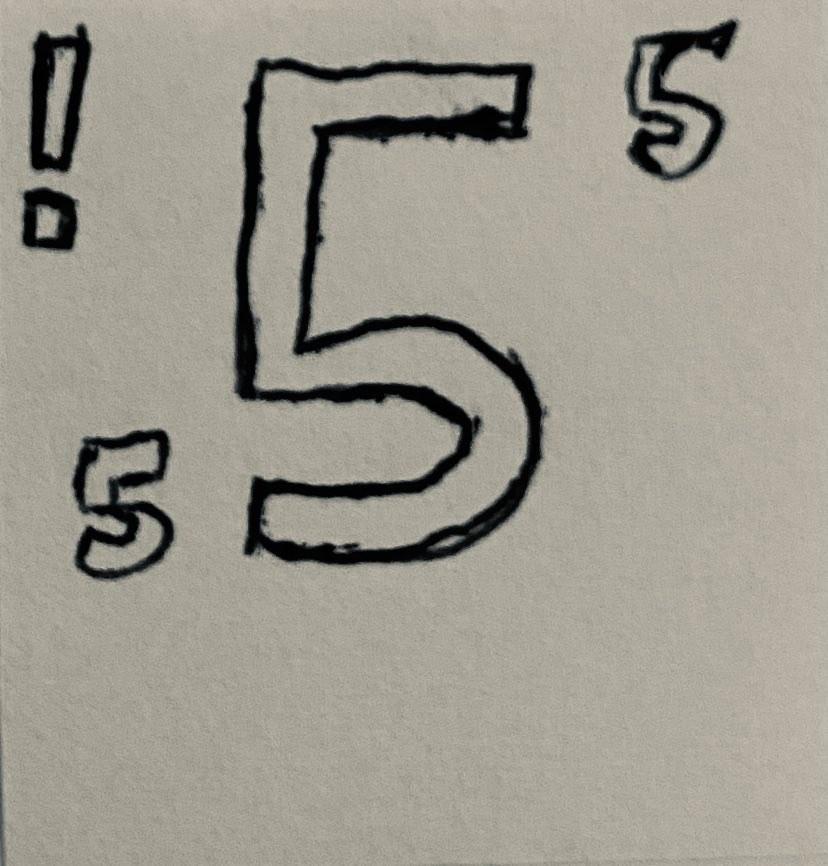 ! 5 5
5